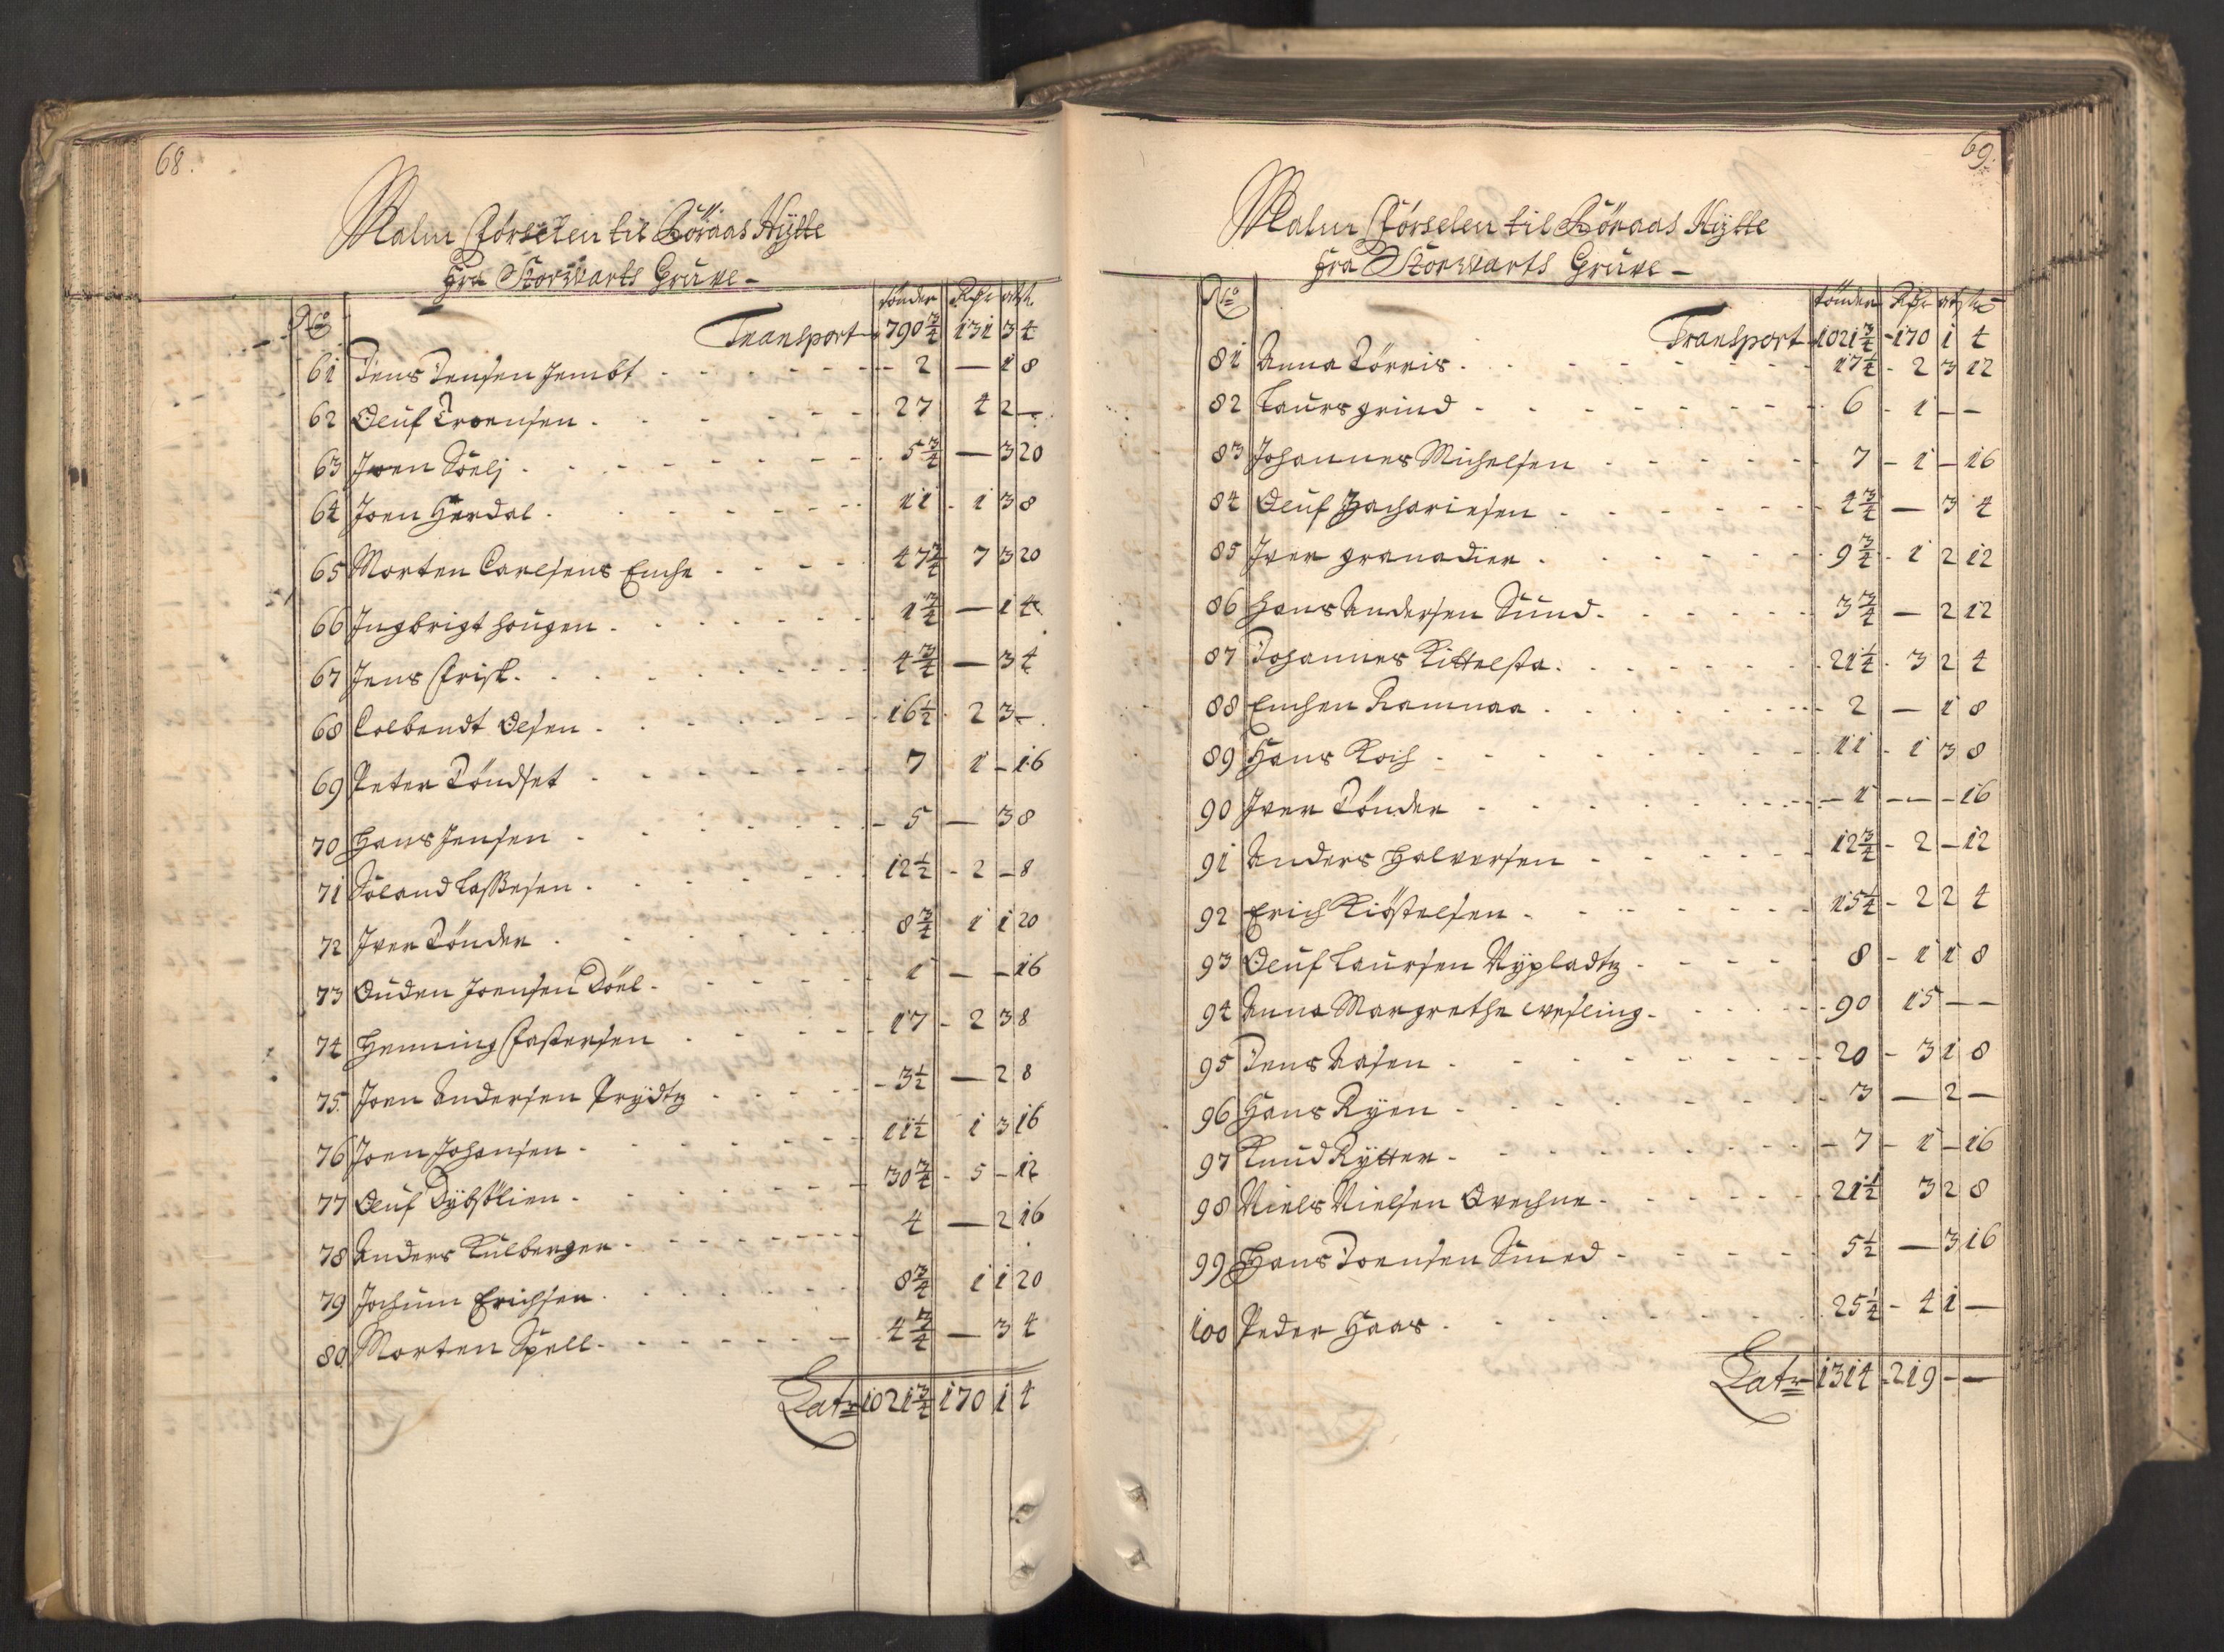 68.
Malm Förselen til Röraas Hÿtte
fra Storwarts Gruve –
No tönder Rdr ort ß
Transport 790 3/4 131 3 4
61 Jens Jensen Jembt 2 — 1 8
62 Oluf Troensen 27 4 2 —
63 Joen Söelj 5 3/4 — 3 20
64 Joen Herdal 11 1 3 8
65 Morten Carlsens Enche 47 3/4 7 3 20
66 Ingbrigt Hougen 1 3/4 — 1 4
67 Jens Frisk 4 3/4 — 3 4
68 Colbendt Olsen 16 1/2 2 3 —
69 Peter Töndset 7 1 — 16
70 Hans Jensen 5 — 3 8
71 Söland Lassesen 12 1/2 2 — 8
72 Iver Tönder 8 3/4 1 1 20
73 Ouden Joensen Döel 1 — — 16
74 Henning Fastersen 17 2 3 8
75 Joen Andersen Prydtz 3 1/2 — 2 8
76 Joen Johansen 11 1/2 1 3 16
77 Oluf Dybsölien 30 3/4 5 — 12
78 Anders Kulberger 4 — 2 16
79 Jochum Erichsen 8 3/4 1 1 20
80 Morten Spell 4 3/4 — 3 4
Latr 1021 3/4 170 1 4
69.
Malm Förselen til Röraas Hÿtte
fra Storwarts Gruve –
No tönder Rdr ort ß
Transport 1021 3/4 170 1 4
81 Anna Törris 17 1/4 2 3 12
82 Laurs grind 6 1 — —
83 Johannes Michelsen 7 1 — 16
84 Oluf Zachariesen 4 3/4 — 3 4
85 Iver granadier 9 3/4 1 2 12
86 Hans Andersen Sund 3 3/4 — 2 12
87 Johannes Kittelsta 21 1/4 3 2 4
88 Enchen Ramnaa 2 — 1 8
89 Hans Koch 11 1 3 8
90 Iver Tönder 1 — — 16
91 Anders Halversen 12 3/4 2 — 12
92 Erich Kiöstelsen 15 1/4 2 2 4
93 Oluf Laursen Nÿpladtz 8 1 1 8
94 Anna Margrethe wesling 90 15 — —
95 Jens Aasen 20 3 1 8
96 Hans Rÿen 3 — 2 —
97 Knud Rÿtter 7 1 — 16
98 Niels Nielsen Overhne 21 1/2 3 2 8
99 Hans Joensen Smed 5 1/2 — 3 16
100 Peder Haas 25 1/4 4 1 —
Latr 1314 219 — —